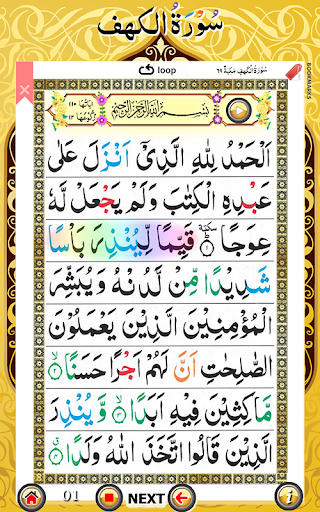 سُوْرَةُ الْكَهْفِ
loop
سُوْرَةُ الْكَهْفِ مَكِّيَّةٌ ٦٩
BOOKMARKS
اٰيَاتُهَا ١١٠
رُكُوْعُهَا ١٢
بِسْمِ اللهِ الرَّحْمٰنِ الرَّحِيْمِ
اَلْحَمْدُ لِلّٰهِ الَّذِیْۤ اَنْزَلَ عَلٰی
عَبْدِهِ الْكِتٰبَ وَلَمْ یَجْعَلْ لَّهٗ
عِوَجًا ؕ سكتة ۱ قَیِّمًا لِّیُنْذِرَ بَاْسًا
شَدِیْدًا مِّنْ لَّدُنْهُ وَ یُبَشِّرَ
الْمُؤْمِنِیْنَ الَّذِیْنَ یَعْمَلُوْنَ
الصّٰلِحٰتِ اَنَّ لَهُمْ اَجْرًا حَسَنًا ۲
مَّاكِثِیْنَ فِیْهِ اَبَدًا ۳ وَّ یُنْذِرَ
الَّذِیْنَ قَالُوا اتَّخَذَ اللّٰهُ وَلَدًا ۴
01 NEXT i